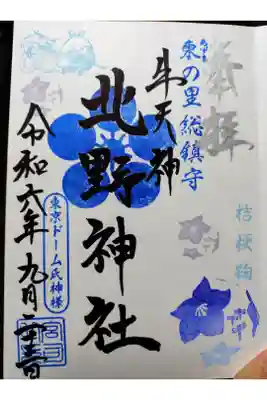 奉拝
桔梗鞠
東の里総鎮守
牛天神
北野神社
東京ドーム氏神様
令和六年九月二十三日